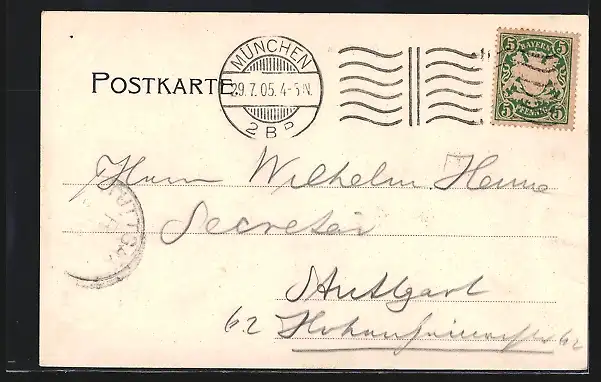 MÜNCHEN
29.7.05. 4-5 N.
2 B P
5 BAYERN 5
5 PFENNIG 5
POSTKARTE
Herrn Wilhelm
Secretär
Stuttgart
62
62